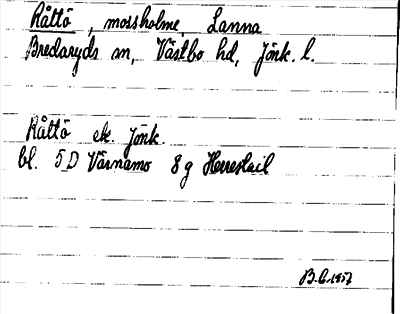 Råttö, mossholme, Lanna
Bredaryds sn, Västbo hd, Jönk. l.
Råttö ek. Jönk.
bl. 5 D Värnamo 8 g Herrestad
B.G. 1957